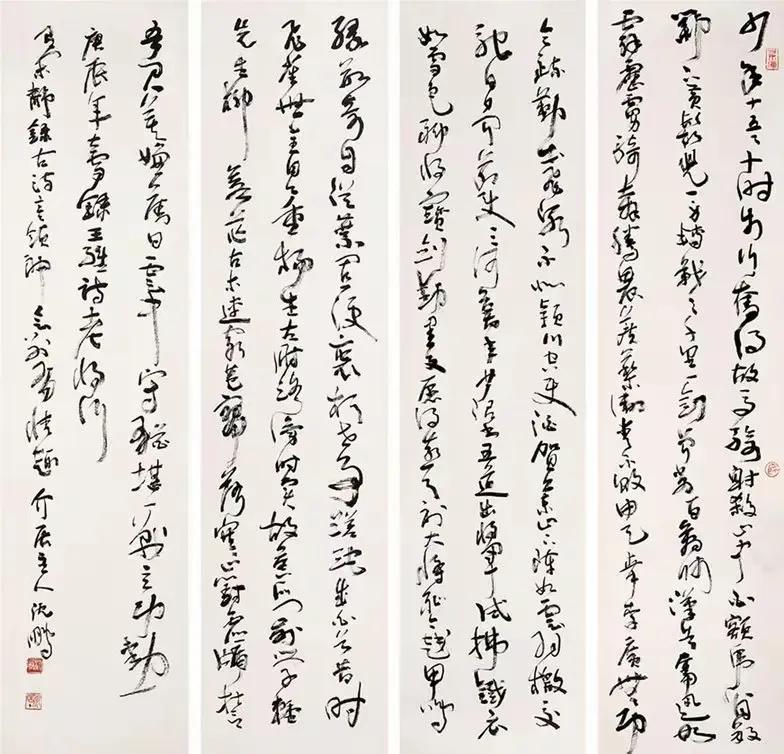 少年十五二十时步行夺得胡马骑射杀山中白额虎肯数
邺下黄须儿一身转战三千里一剑曾当百万师汉兵奋迅如
霹雳虏骑奔腾畏蒺藜卫青不败由天幸李广无功
令疏勒出飞泉不似颍川空使酒贺兰山下阵如云羽檄交
驰日夕闻节使三河募年少诏书五道出将军试拂铁衣
如雪色聊持宝剑动星文愿得燕弓射大将耻令越甲鸣
缘数奇自从弃置便衰朽世事蹉跎成白首昔时
飞雀无全目今日垂杨生左肘路旁时卖故侯瓜门前学种
先生柳苍茫古木连穷巷寥落寒山对虚牖誓
吾君莫嫌旧日云中守犹堪一战立功勋
庚辰年春录王维诗老将行
静录古诗意领神会别有情趣介居主人沈鹏